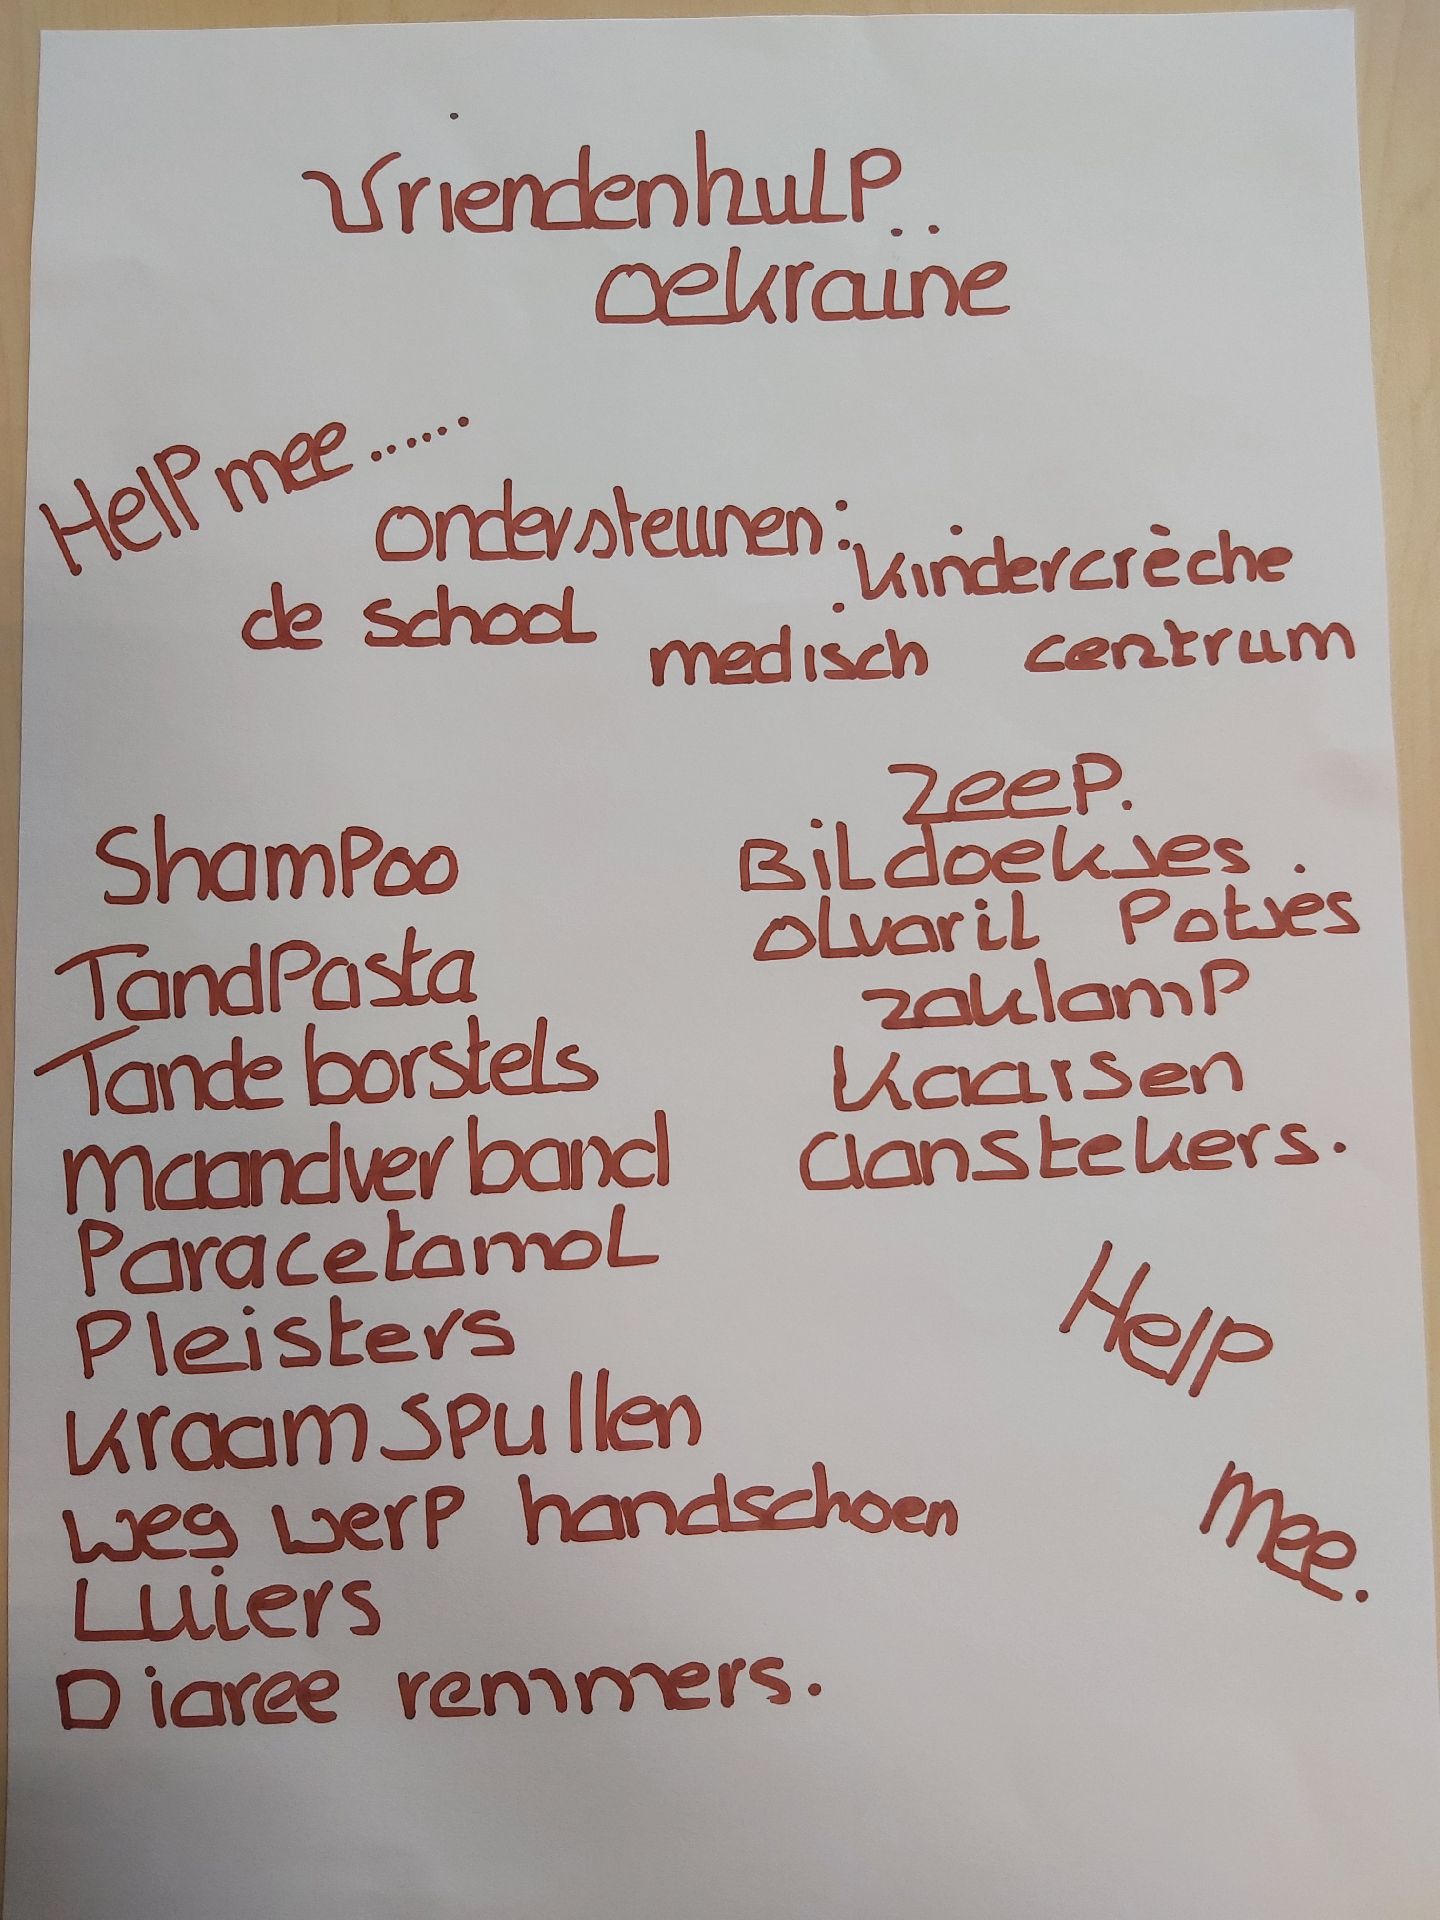 Vriendenhulp
Oekraïne
Help mee ......
ondersteunen:
kindercrèche
de school
medisch centrum
Shampoo
Tandpasta
Tandeborstels
maandverband
Paracetamol
Pleisters
kraamspullen
weg werp handschoen
Luiers
Diaree remmers.
zeep.
Bildoekjes.
olvaril Potjes
zaklamp
kaarsen
aanstekers.
Help
mee.